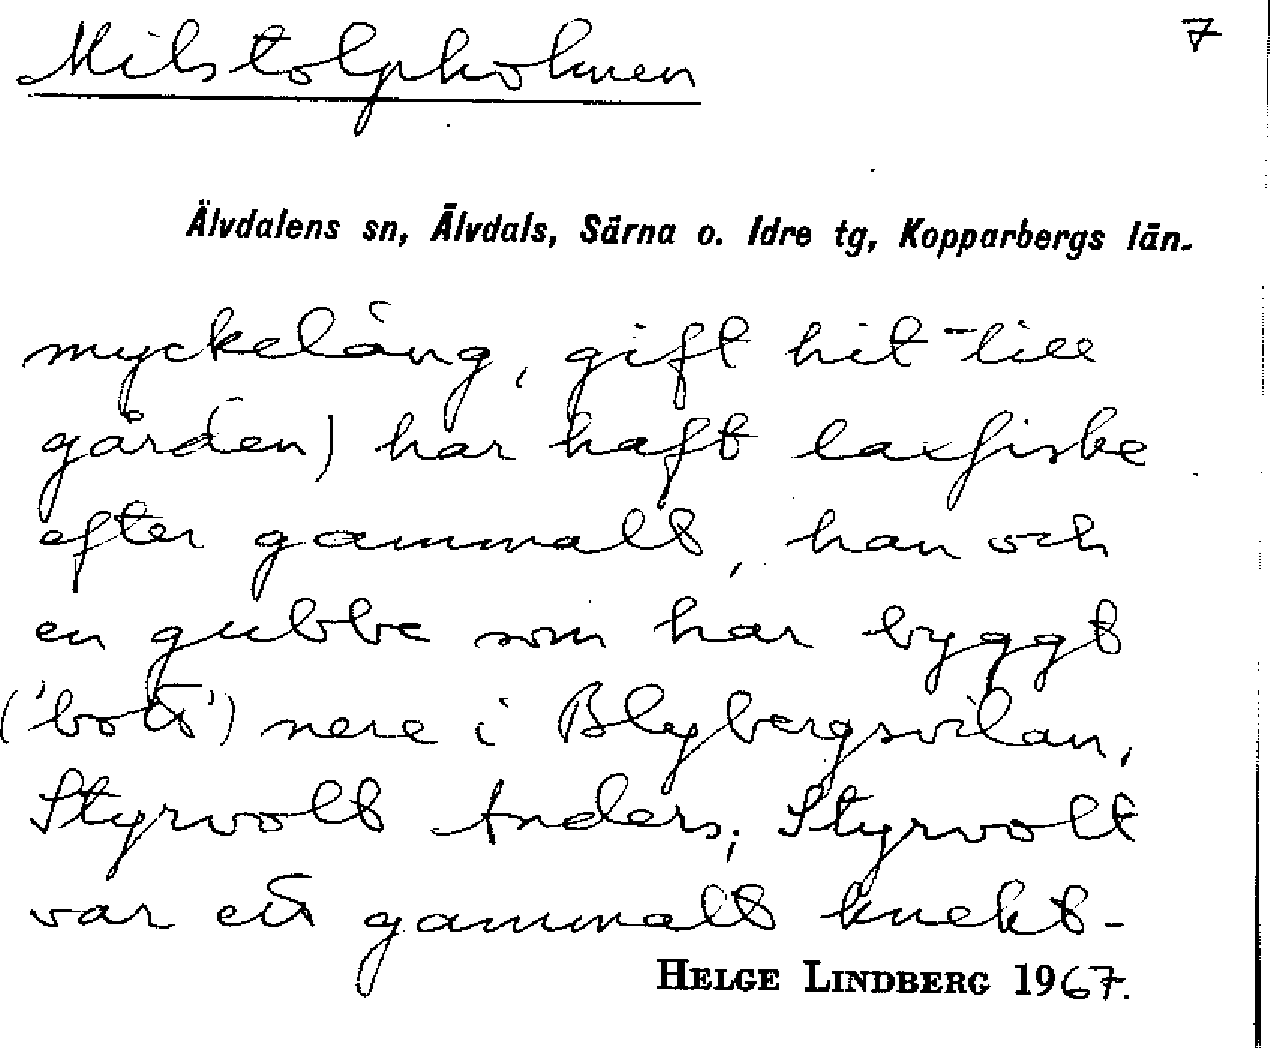 Milstolpholmen
7
Älvdalens sn, Älvdals, Särna o. Idre tg, Kopparbergs län.
myckeläng, gift hit till
gården) har haft laxfiske
efter gammalt, han och
en gubbe som har byggt
('bott') nere i Blybergsvilan,
Styrvolt Anders; Styrvolt
var ett gammalt knekt-
HELGE LINDBERG 1967.